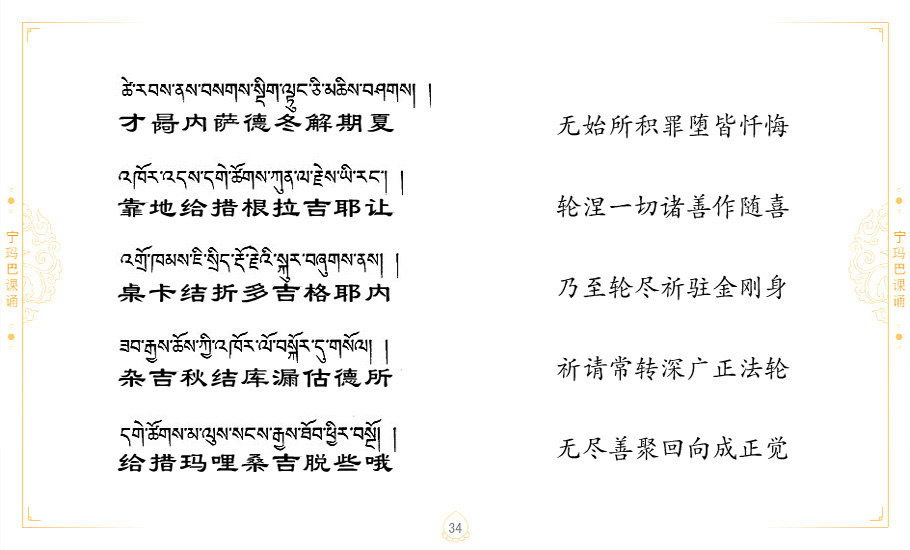 ཚེ་རབས་ནས་བསགས་སྡིག་ལྟུང་ཅི་མཆིས་བཤགས། །
才曷内萨德冬解期夏
无始所积罪堕皆忏悔
འཁོར་འདས་དགེ་ཚོགས་ཀུན་ལ་རྗེས་ཡི་རང༌། །
靠地给措根拉吉耶让
轮涅一切诸善作随喜
འགྲོ་ཁམས་ཇི་སྲིད་རྡོ་རྗེའི་སྐུར་བཞུགས་ནས། །
桌卡结折多吉格耶内
乃至轮尽祈驻金刚身
ཟབ་རྒྱས་ཆོས་ཀྱི་འཁོར་ལོ་བསྐོར་དུ་གསོལ། །
杂吉秋结库漏估德所
祈请常转深广正法轮
དགེ་ཚོགས་མ་ལུས་སངས་རྒྱས་ཐོབ་ཕྱིར་བསྔོ། །
给措玛哩桑吉脱些哦
无尽善聚回向成正觉
宁玛巴课诵
宁玛巴课诵
34